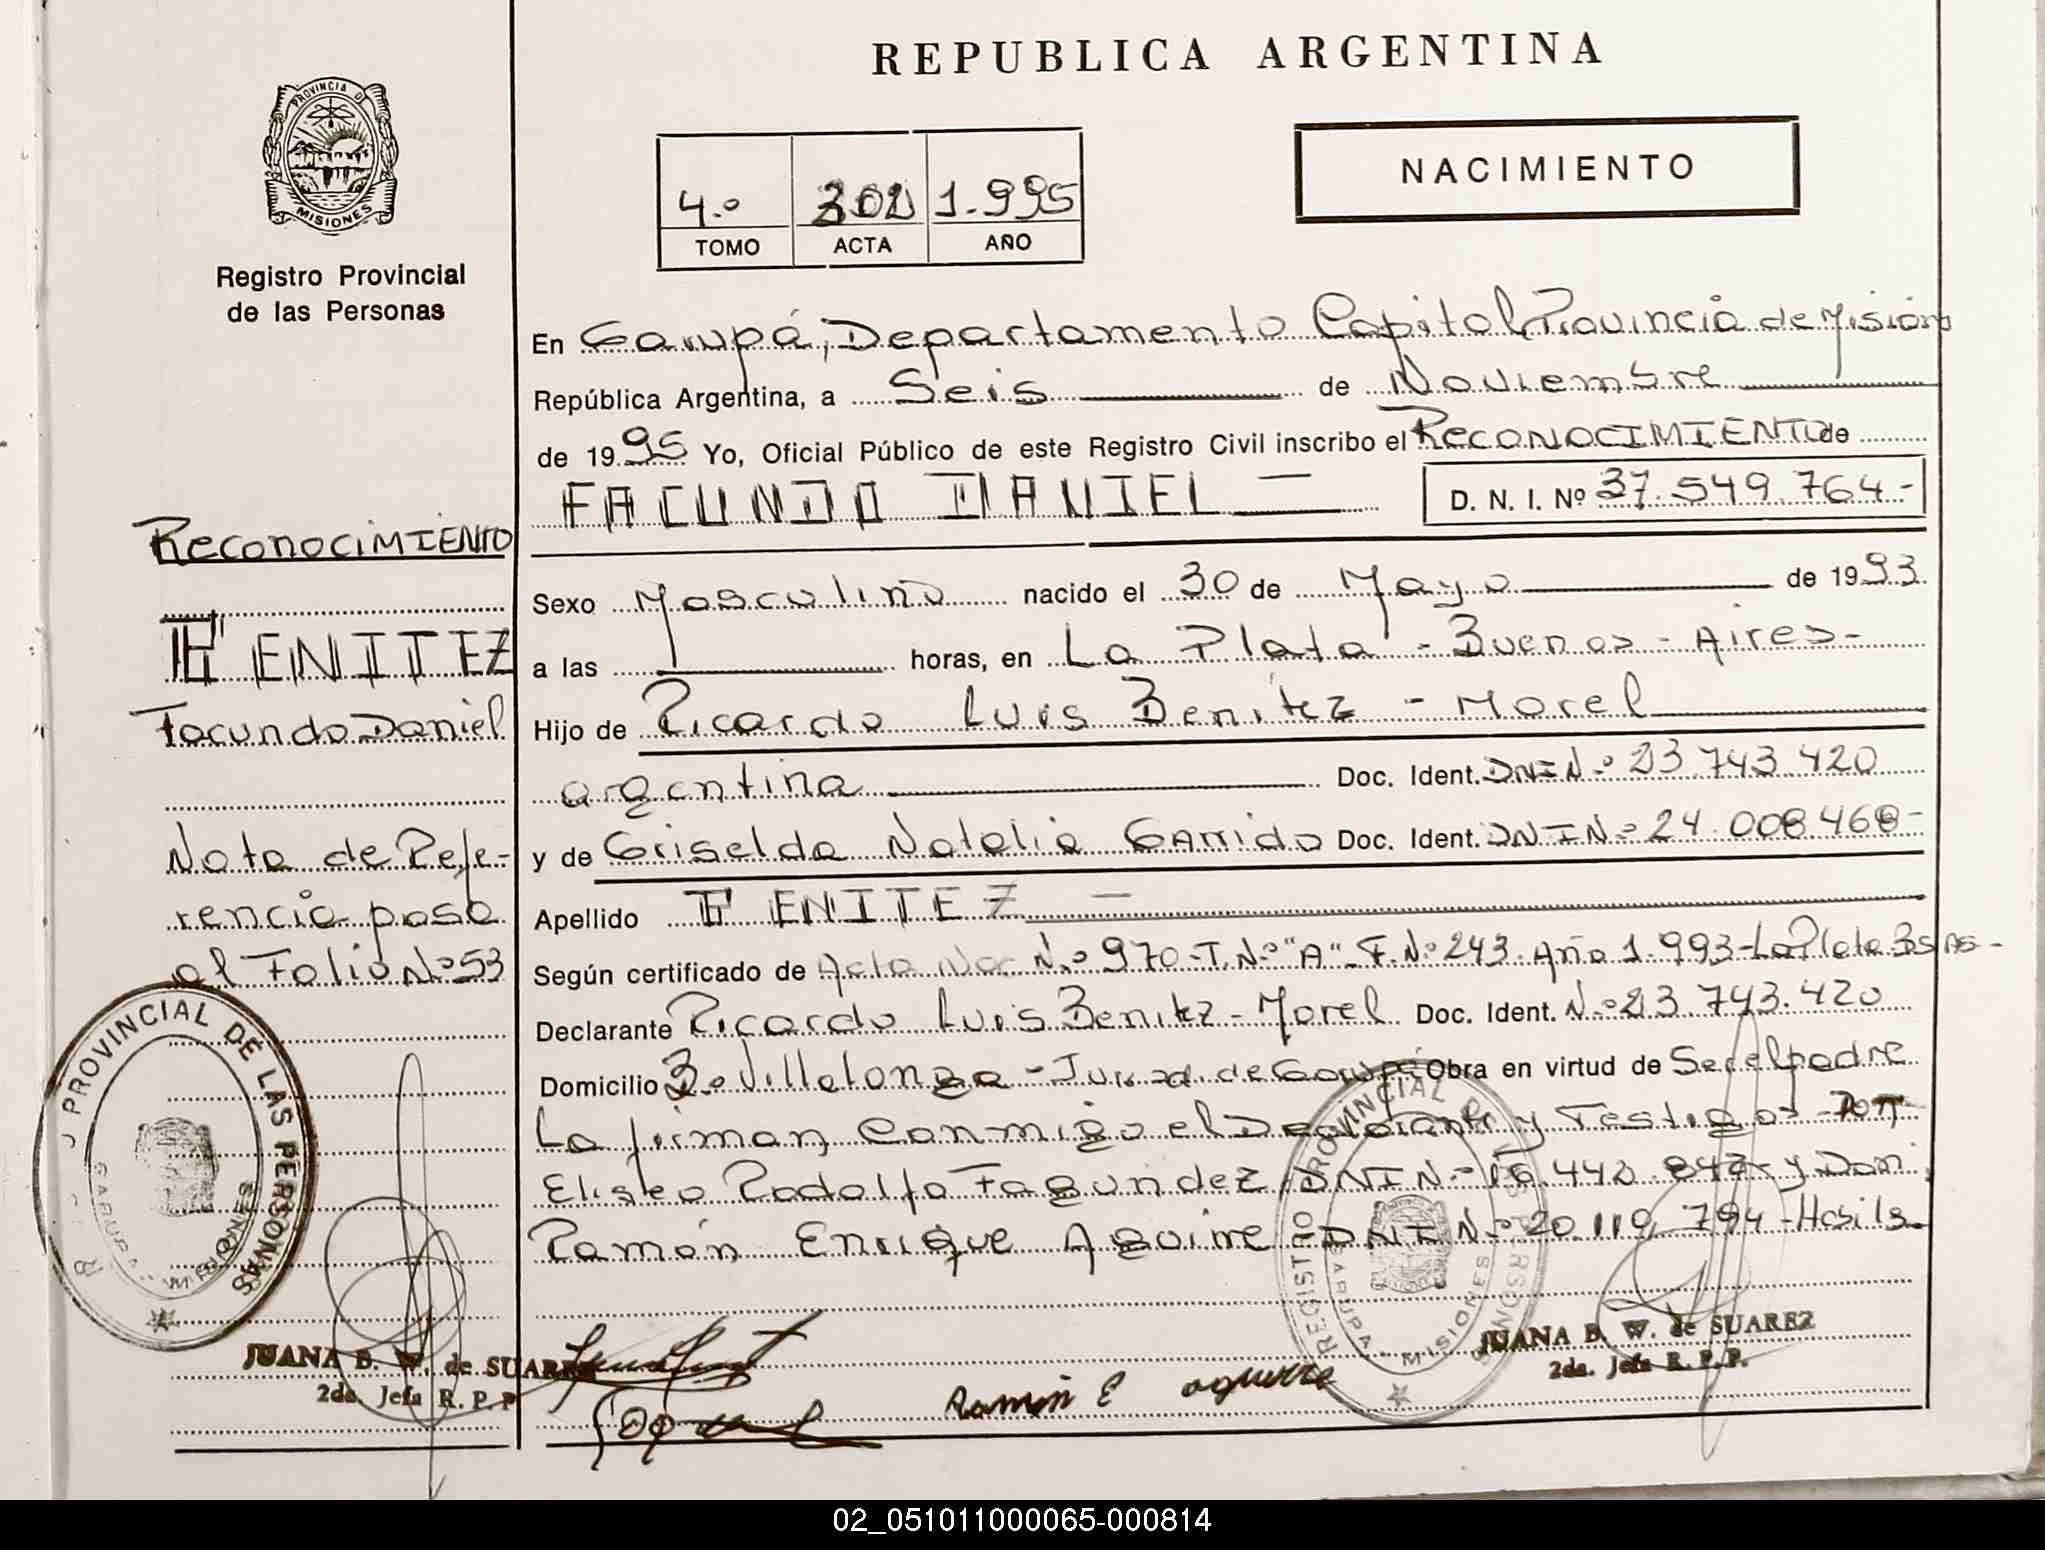 REPUBLICA ARGENTINA
PROVINCIA D
MISIONES
Registro Provincial
de las Personas
NACIMIENTO
4.º 302 1.995
TOMO ACTA AÑO
En Garupá, Departamento Capital, Provincia de Misiones
República Argentina, a Seis de Noviembre
de 1995 Yo, Oficial Público de este Registro Civil inscribo el RECONOCIMIENTO de
FACUNDO DANIEL D. N. I. Nº 37.549.764-
Sexo Masculino nacido el 30 de Mayo de 1993.
a las horas, en La Plata - Buenos - Aires-
Hijo de Ricardo Luis Benitez - Morel
argentina Doc. Ident. DNI N.º 23.743.420
y de Griselda Natalia Garrido Doc. Ident. DNI N.º 24.008.468-
Apellido BENITEZ -
Según certificado de Acta Nac. N.º 970-T.N.º "A"-F.N.º 243. Año 1.993-La Plata Bs As-
Declarante Ricardo Luis Benitez - Morel Doc. Ident. N.º 23.743.420
Domicilio Bº Villalonga - Jurisd. de Garupá Obra en virtud de Ser el padre
La firman, Conmigo el Declarante y Testigos Don
Eliseo Rodolfo Fagundez DNI N.º 442. y Don
Ramón Enrique Aguirre DNI N.º 20.119.794-
RECONOCIMIENTO
BENITEZ
Facundo Daniel
Nota de Refe-
rencia pasa
al Folio N.º 53
PROVINCIAL DE LAS PERSONAS
GARUPA - MISIONES
JUANA B. W. de SUAREZ
2da. Jefa R. P. P.
Ramón E aguirre
REGISTRO PROVINCIAL DE LAS PERSONAS
GARUPA - MISIONES
JUANA B. W. de SUAREZ
2da. Jefa R. P. P.
02_051011000065-000814